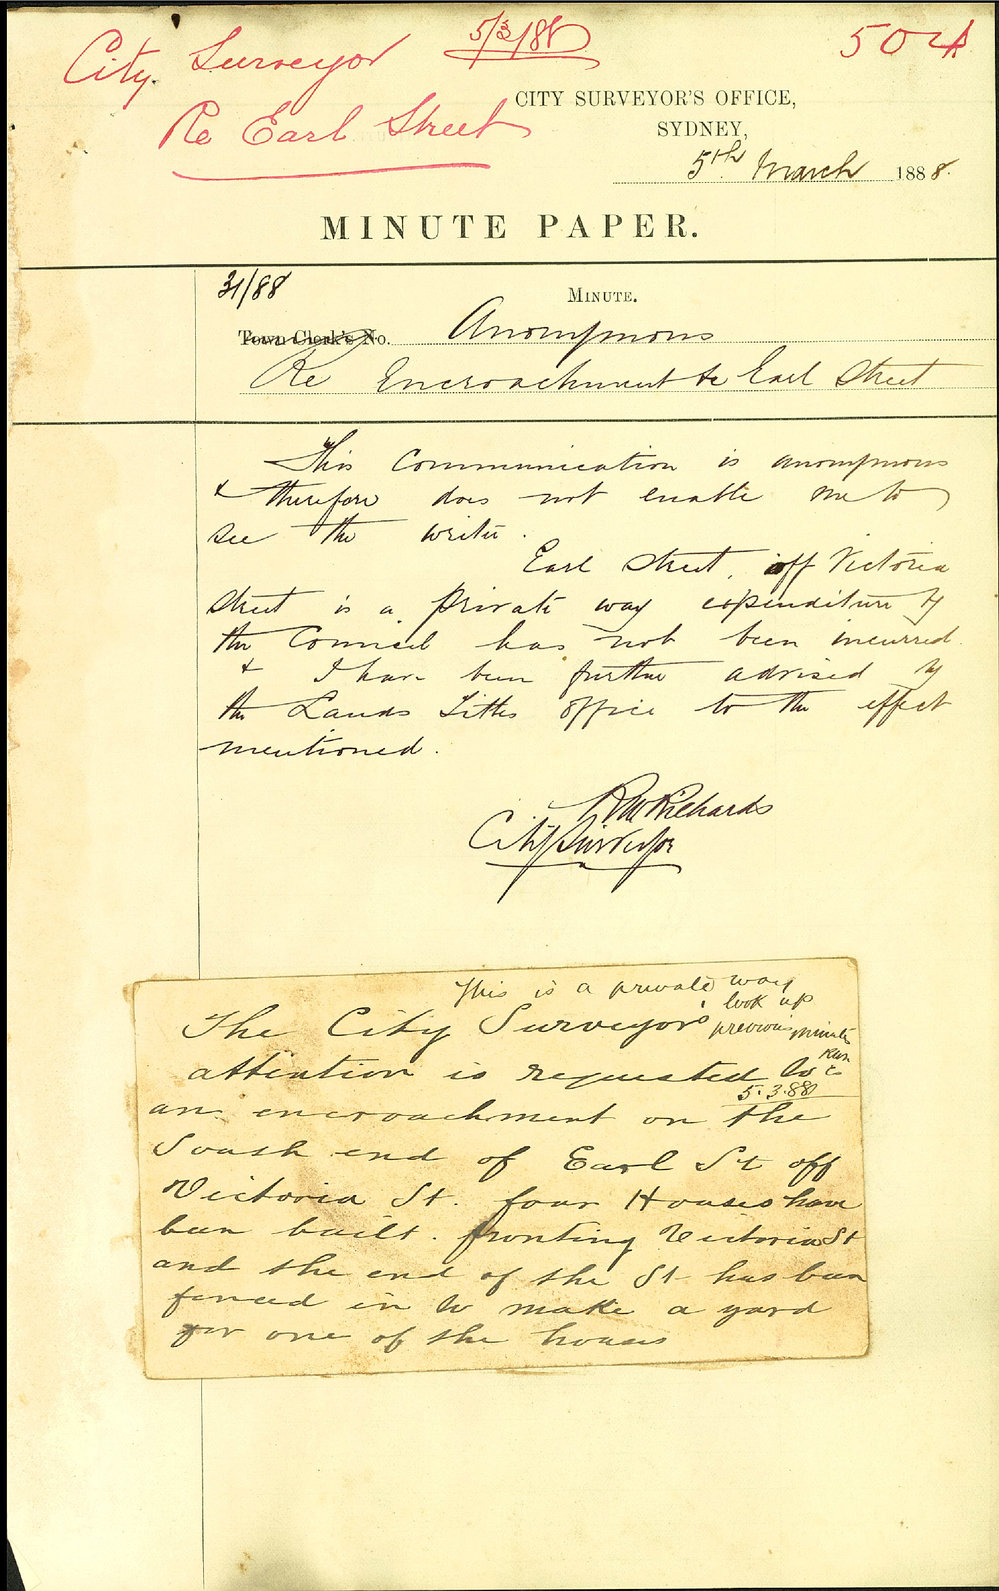 City Surveyor 5/3/88 504
Re Earl Street
CITY SURVEYOR'S OFFICE,
SYDNEY,
5th March 1888.
MINUTE PAPER.
31/88
MINUTE.
Town Clerk's No. Anonymous
Re Encroachment to Earl Street
This Communication is anonymous
& therefore does not enable me to
see the writer.
Earl Street, off Victoria
Street is a private way expenditure by
the Council has not been incurred
& I have been further advised by
the Lands Titles Office to the effect
mentioned.
RW Richards
City Surveyor
This is a private way
look up
previous minute
5.3.88
The City Surveyors
attention is requested to
an encroachment on the
South end of Earl St off
Victoria St. four Houses have
been built. fronting Victoria St
and the end of the St has been
fenced in to make a yard
for one of the houses